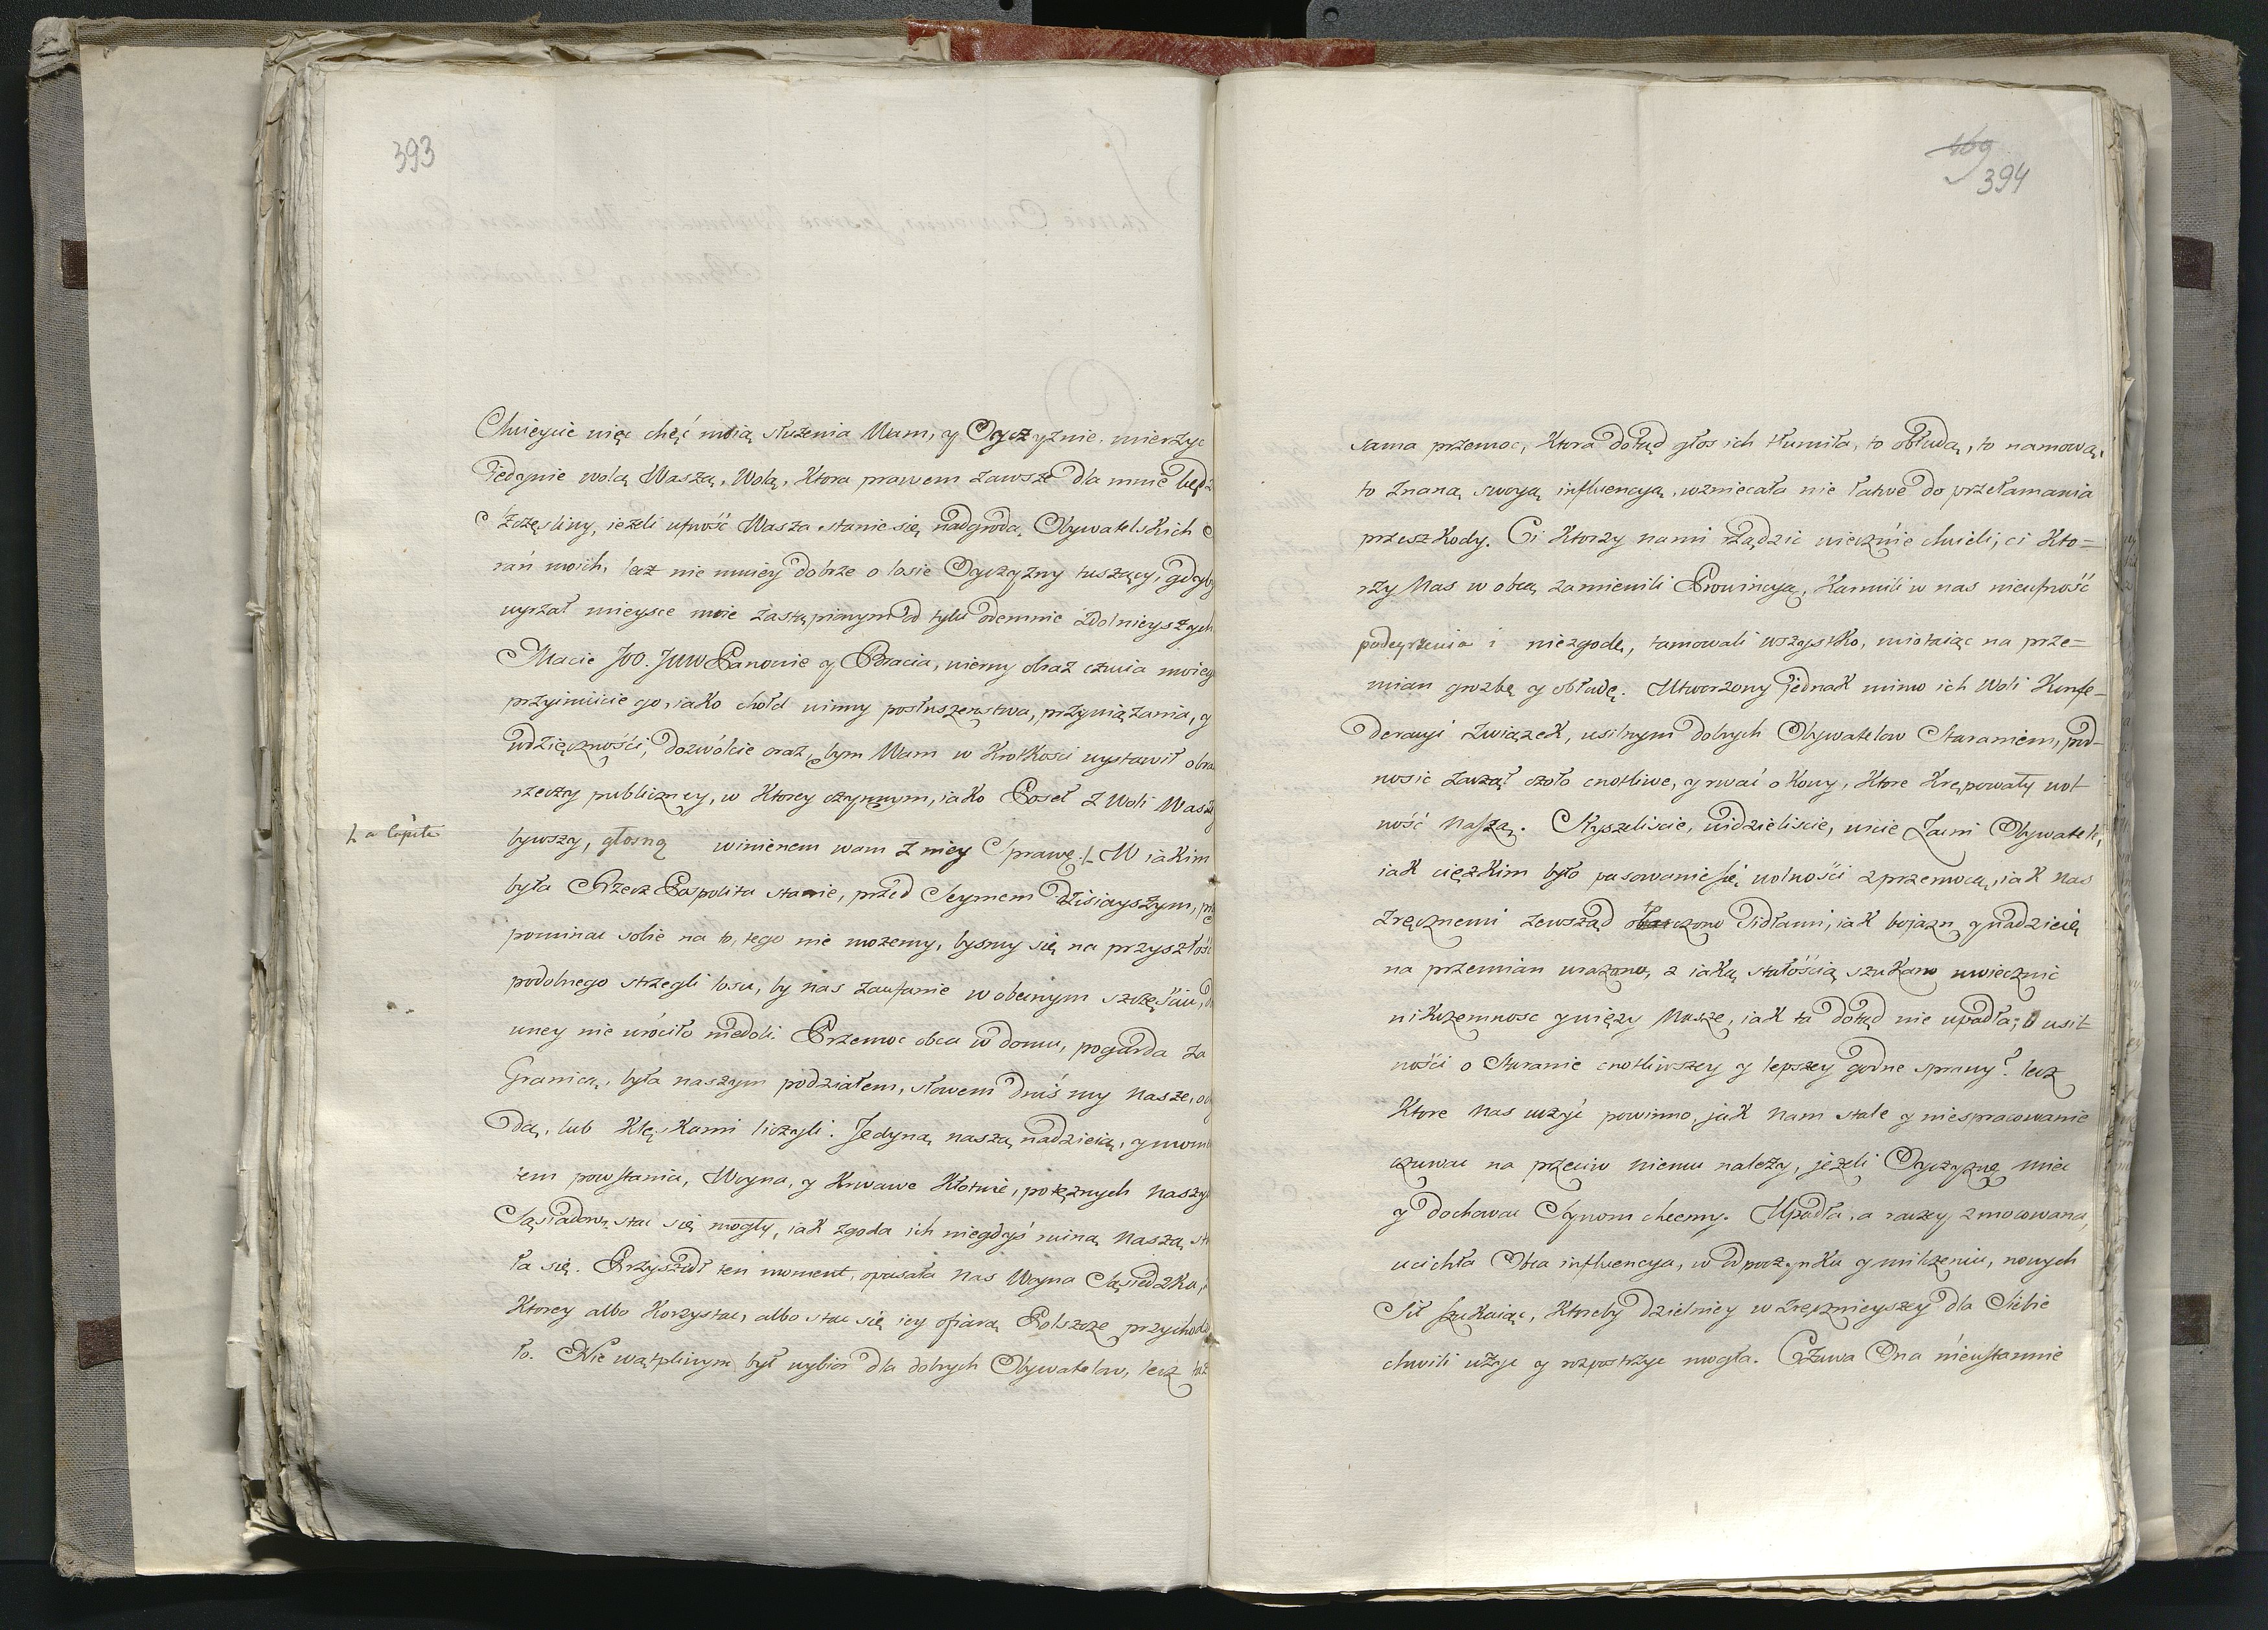 393
Chcieycie więc chęć moią służenia Wam, y Oyczyznie, mierzyc
Jedynie wolą Waszą, Wolą, Ktora prawem zawsze dla mnie będz
Szczęsliwy, ieżeli ufność Wasza stanie się nadgrodą Obywatelskich S
rań moich, lecz nie mniey dobrze o losie Oyczyzny tuszący, gdyby
uyrzał mieysce moie zastąpionym od tylu odemnie zdolnieyszych
Macie JOO. JWW Panowie y Bracia, wierny obraz czucia moieg
przyimiicie go, iako chołd winny posłuszenstwa, przywiązania, y
wdzięczności, dozwólcie oraz, bym Wam w Krotkosci wystawił obra
rzeczy publiczney, w Ktorey czynnym, iako Poseł z Woli Wasz
bywszy, głosną winienem wam z niey Sprawę. Ł W iakim
Ł a Capite
była Rzecz Pospolita stanie, przed Seymem dzisiayszym, prz
pominac sobie na to, tego nie możemy, bysmy się na przyszłość
podobnego strzegli losu, by nas zaufanie w obecnym szczęściu, d
wney nie wróciło niedoli. Przemoc obca w domu, pogarda za
Granicą, była naszym podziałem, słowem dniś my nasze, o
Dą, lub Klęskami liczyli. Jedyną naszą nadzieią, y mom
tem powstania, Woyna, y Krwawe Kłotnie, potężnych naszy
Sąsiadow, stac się mogły, iak zgoda ich niegdyś ruiną naszą st
ła się. Przyszedł ten moment, opasała nas Woyna Sąsiedzka,
Ktorey albo Korzystac, albo stac się iey ofiarą Polszcze przychodz
ło. Nie wątpliwym był wybior dla dobrych Obywatelow, lecz taż
169
394
sama przemoc, Ktora dotąd głos ich tłumiła, to obłudą, to namową,
to znaną swoyą influencyą, wzniecała nie łatwe do przełamania
przeszkody. Ci Ktorzy nami rządzic wiecznie chcieli, ci Kto=
rzy Nas w obcą zamienili Prowincyą, Karmili w nas nieufność
podeyrzenia i niezgodę, tamowali wszystko, miotaiąc na prze=
mian grozbę y obłudę. Utworzony jednak mimo ich Woli Konfe=
deracyi Związek, usilnym dobrych Obywatelow Staraniem, pod=
nosic zaczął czoło cnotliwe, y rwać okowy, Ktore Krępowały wol
ność naszą. Słyszeliscie, widzieliscie, wiecie Zacni Obywatele,
iak cięzkim było pasowanie się wolności z przemocą, iak nas
zręcznemi zewsząd toczono Sidłami, iak bojazn y nadzieię
na przemian wrażano, z iaką stałością szukano uwiecznic
nikczemnosc y więzy Nasze, iak ta dotąd nie upadła; O usil
ności o Staranie cnotliwszey y lepszey godne sprawy? lecz
Ktore nas uczyć powinno, jak nam stale y niespracowanie
czuwac na przeciw niemu należy, jeżeli Oyczyznę miec
y dochowac Synom chcemy. Upadła, a raczey zmocowana,
ucichła Obca influencya, w odpoczynku y milczeniu, nowych
Sił szukaiąc, Ktoreby dzielniey w zręcznieyszey dla Siebie
chwili użyc y rozpostrzyc mogła. Czuwa Ona nieustannie